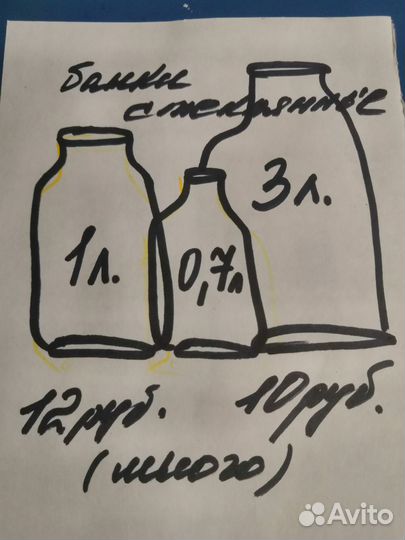 банки
стеклянные
3 л.
1 л.
0,7 л
12 руб. 10 руб.
(много)
Avito